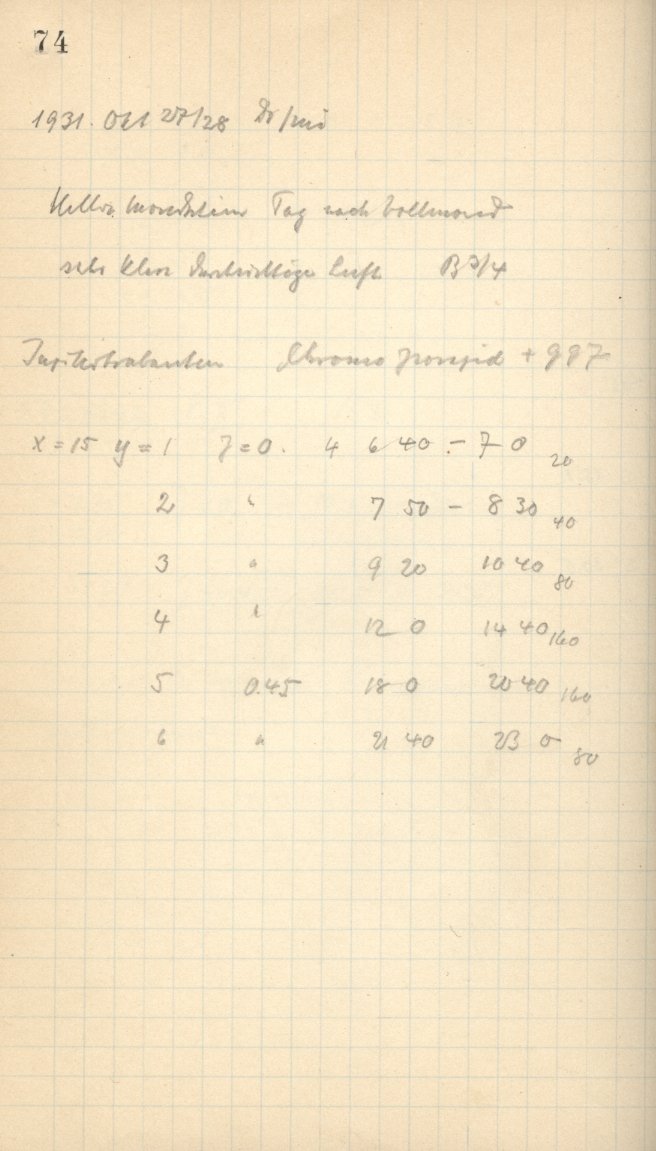 74
1931. Okt 27/28 Di/Mi
Heller Mondschein Tag nach Vollmond
sehr klare durchsichtige Luft B 3/4
Jupitertrabanten Chromo + 997
x = 15 y = 1 z = 0. 4 6 40 - 7 0 20
2 " 7 50 - 8 30 40
3 " 9 20 10 40 80
4 " 12 0 14 40 160
5 0.45 18 0 20 40 160
6 " 21 40 23 0 80